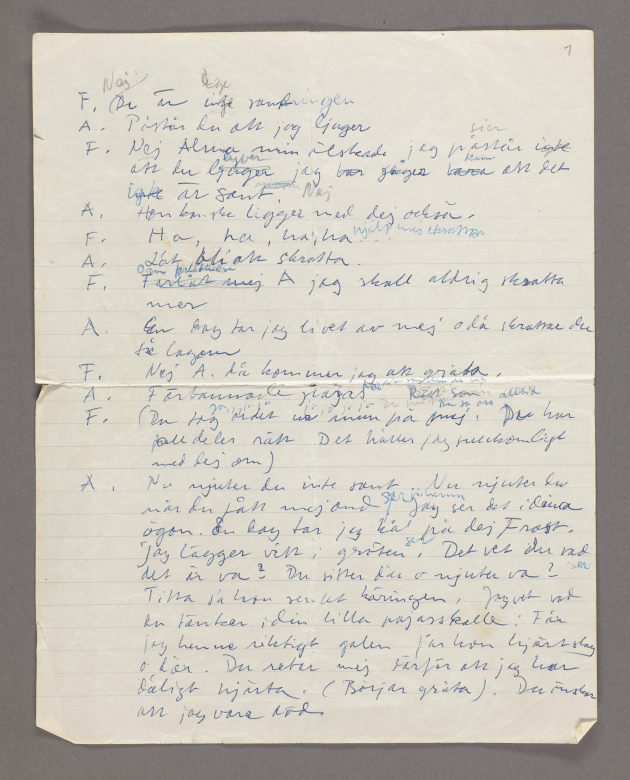 1
Nej
F. (De är inte sanningen
A. Påstår du att jag ljuger
F. Nej Alma min älskade, jag påstår inte
säger
att du ljuger jag bar säger bara att det
inte är sant. Nej
A. Hon kanske ligger med dej också.
F. Ha, ha, ha, ha
A. Låt bli att skratta.
F. Förlåt mej A jag skall aldrig skratta
mer
A. En dag tar jag livet av mej o då skrattar du
så lagom
F. Nej A. då kommer jag att gråta.
A. Förbannade pajas
F. (Du tog ordet ur mun på mej. Du har
alldeles rätt Det håller jag fullkomligt
med dej om)
A. Nu njuter du inte sant. Nu njuter du
när du fått mej ond Jag ser det i dina
ögon. En dag tar jag kål på dej Frost.
Jag lägger vitt i gröten. Det vet du vad
det är va? Du sitter där o njuter va?
Titta så hon ser ut käringen. Jag vet vad
du tänker i din lilla pajasskalle: Får
jag henne riktigt galen får hon hjärtslag
o dör. Du retar mej därför att jag har
dåligt hjärta. (Börjar gråta). Du önskar
att jag vore död.